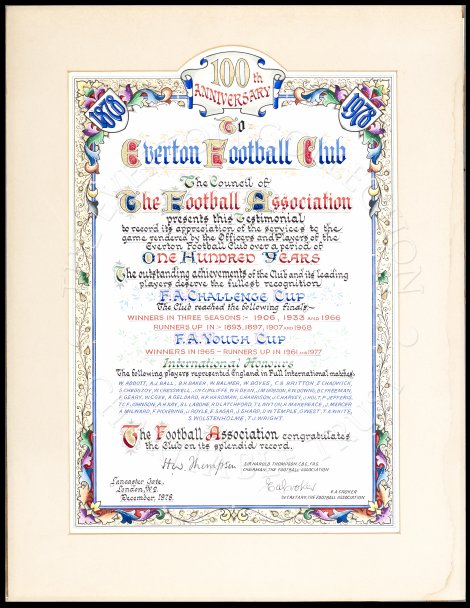 100th
ANNIVERSARY
1878
1978
To
Everton Football Club
The Council of
The Football Association
presents this Testimonial
to record its appreciation of the services to the
game rendered by the Officers and Players of the
Everton Football Club over a period of
ONE HUNDRED YEARS
The outstanding achievements of the Club and its leading
players deserve the fullest recognition
F.A. CHALLENGE CUP
The Club reached the following finals:-
WINNERS IN THREE SEASONS:- 1906, 1933 AND 1966
RUNNERS UP IN:- 1893, 1897, 1907 AND 1968
F.A. YOUTH CUP
WINNERS IN 1965 - RUNNERS UP IN 1961 AND 1977
International Honours
The following players represented England in Full International matches:
W. ABBOTT, A.J. BALL, B.H. BAKER, W. BALMER, W. BOYES, C.S. BRITTON, E. CHADWICK,
S. CHEDGZOY, W. CRESSWELL, J.N. CUNLIFFE, W.R. DEAN, J.W. DAVISON, B.C. FREEMAN,
F. GEARY, W.C. GEE, A. GELDARD, H.P. HARDMAN, G. HARRISON, J.C. HARVEY, J. HOLT, P. JEFFERIS,
T.C.F. JOHNSON, A. KAY, B.L. LABONE, R.D. LATCHFORD, T. LAWTON, H. MAKEPEACE, J. MERCER
A. MILWARD, F. PICKERING, J. ROYLE, E. SAGAR, J. SHARP, D.W. TEMPLE, G. WEST, T.A. WHITE,
S. WOLSTENHOLME, T.J. WRIGHT.
The Football Association congratulates
the Club on its splendid record.
SIR HAROLD THOMPSON, C.B.E., F.R.S.
CHAIRMAN, THE FOOTBALL ASSOCIATION
Lancaster Gate,
London, W2.
December, 1978.
E.A. CROKER
SECRETARY, THE FOOTBALL ASSOCIATION